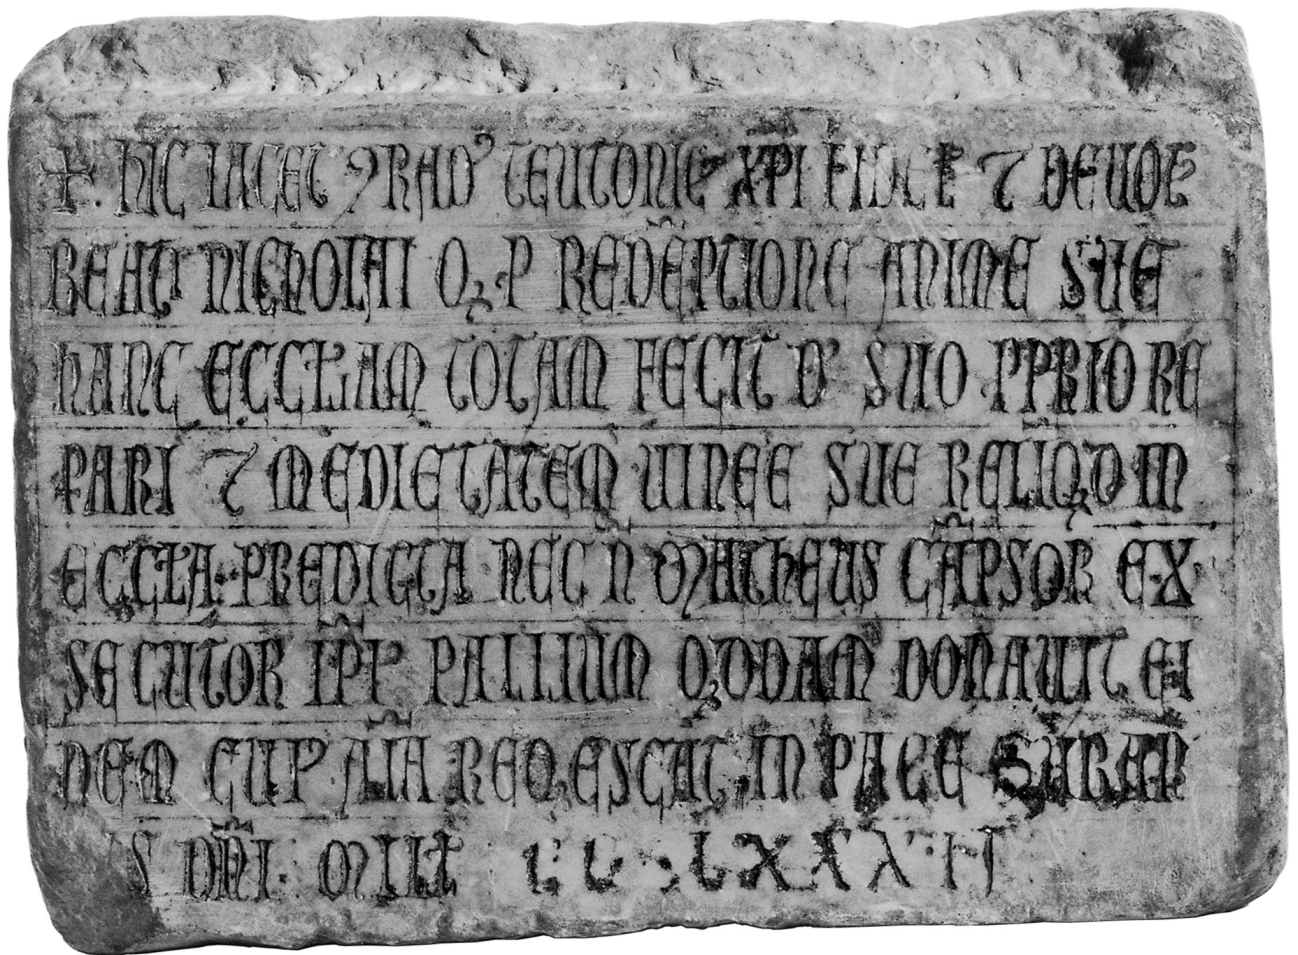 + HIC IACET ꝯRAD' TEUTONIC XPI FIDEL ⁊ DEUOT
BEATI NICHOLAI Q P REDĒPTIONE ANIME SUE
HANC ECCLAM TOTAM FECIT D' SUO PPRIO RE
PARI ⁊ MEDIETATEM UINEE SUE RELIQD IN
ECCLA PREDICTA NEC N MATHEUS CĀPSOR EX
SECUTOR IPI' PALLIUM QDDAM DONAUIT EI
DEM CUI' AIA REQESCAT IN PACE
DNI MILL CC LXXX